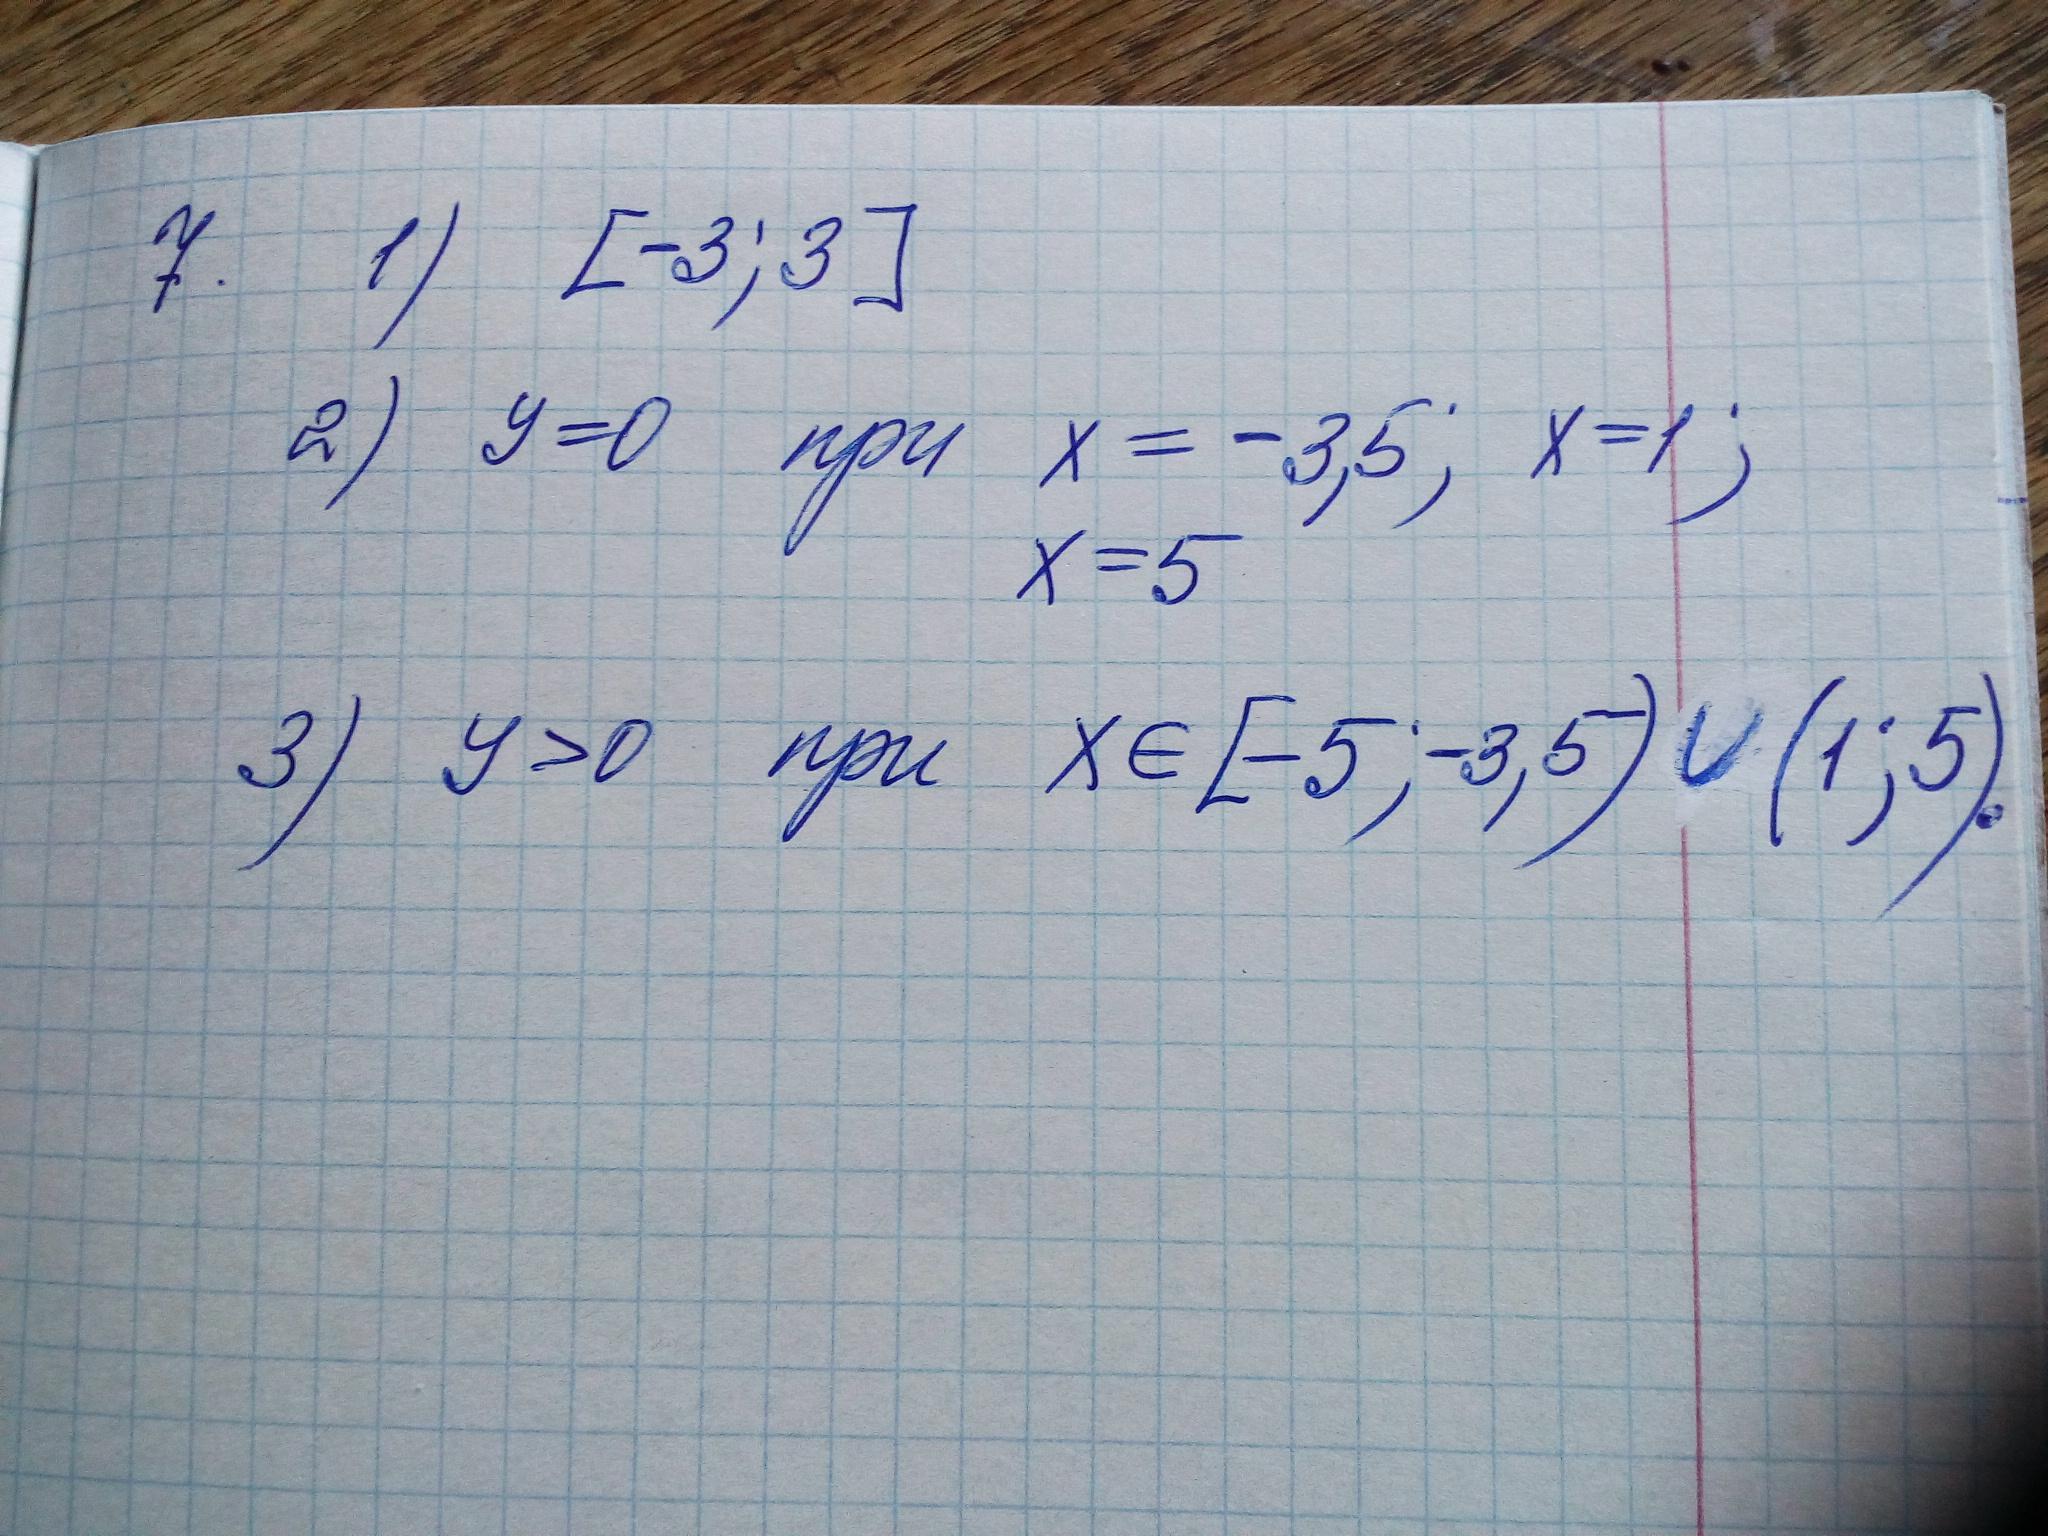 7. 1) [-3; 3]
2) y=0 при x = -3,5; x=1;
x=5
3) y>0 при x∈[-5;-3,5)∪(1;5).